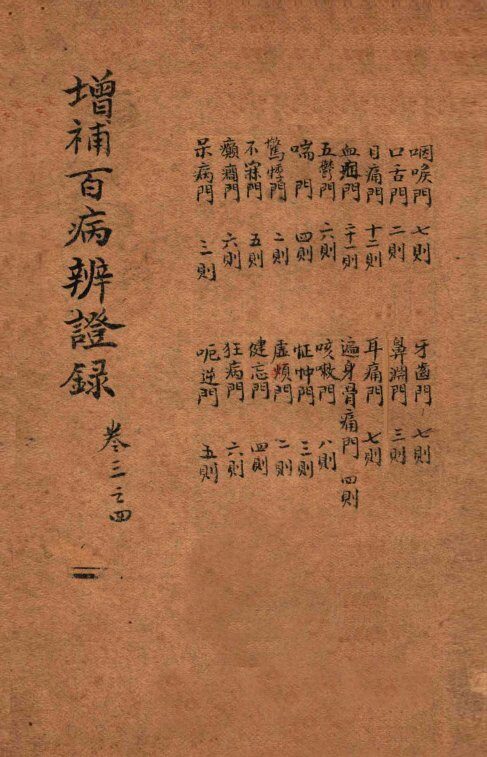 咽喉門 七則 牙齒門 七則
口舌門 二則 鼻淵門 三則
目痛門 十二則 耳痛門 七則
血症門 二十一則 遍身骨痛門 四則
五鬱門 六則 咳嗽門 八則
喘門 四則 怔忡門 三則
驚悸門 二則 虛煩門 二則
不寐門 五則 健忘門 四則
癲癇門 六則 狂病門 六則
呆病門 三則 呃逆門 五則
增補百病辨證録 卷三之四 二